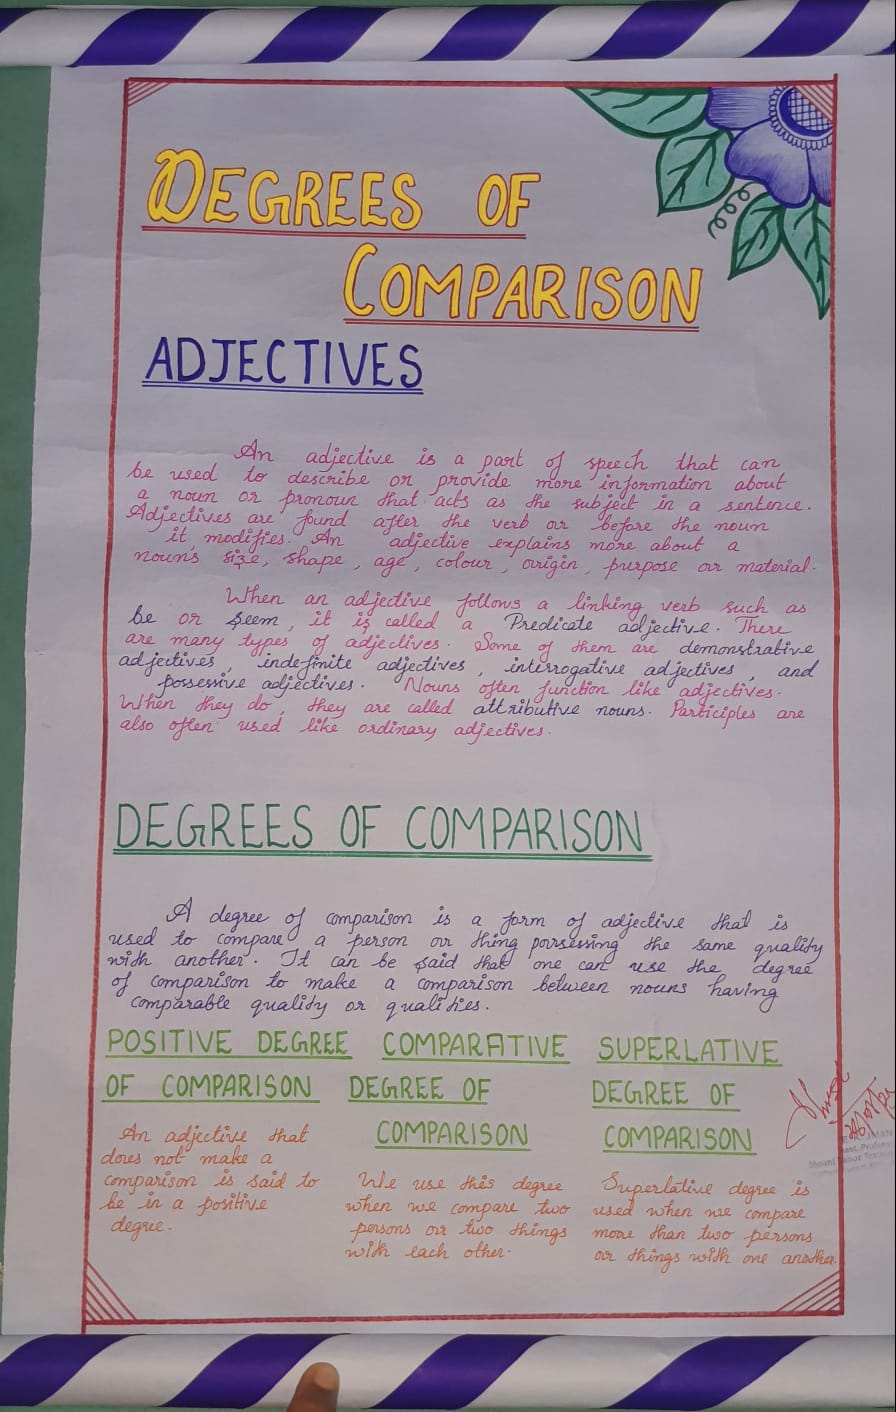 DEGREES OF
COMPARISON
ADJECTIVES
An adjective is a part of speech that can
be used to describe or provide more information about
a noun or pronoun that acts as the subject in a sentence.
Adjectives are found after the verb or before the noun
it modifies. An adjective explains more about a
noun's size, shape, age, colour, origin, purpose or material.
When an adjective follows a linking verb such as
be or seem, it is called a Predicate adjective. There
are many types of adjectives. Some of them are demonstrative
adjectives, indefinite adjectives, interrogative adjectives, and
possessive adjectives. Nouns often function like adjectives.
When they do, they are called attributive nouns. Participles are
also often used like ordinary adjectives.
DEGREES OF COMPARISON
A degree of comparison is a form of adjective that is
used to compare a person or thing possessing the same quality
with another. It can be said that one can use the degree
of comparison to make a comparison between nouns having
comparable quality or qualities.
POSITIVE DEGREE
OF COMPARISON
An adjective that
does not make a
comparison is said to
be in a positive
degree.
COMPARATIVE
DEGREE OF
COMPARISON
We use this degree
when we compare two
persons or two things
with each other.
SUPERLATIVE
DEGREE OF
COMPARISON
Superlative degree is
used when we compare
more than two persons
or things with one another.
Mount Tabor